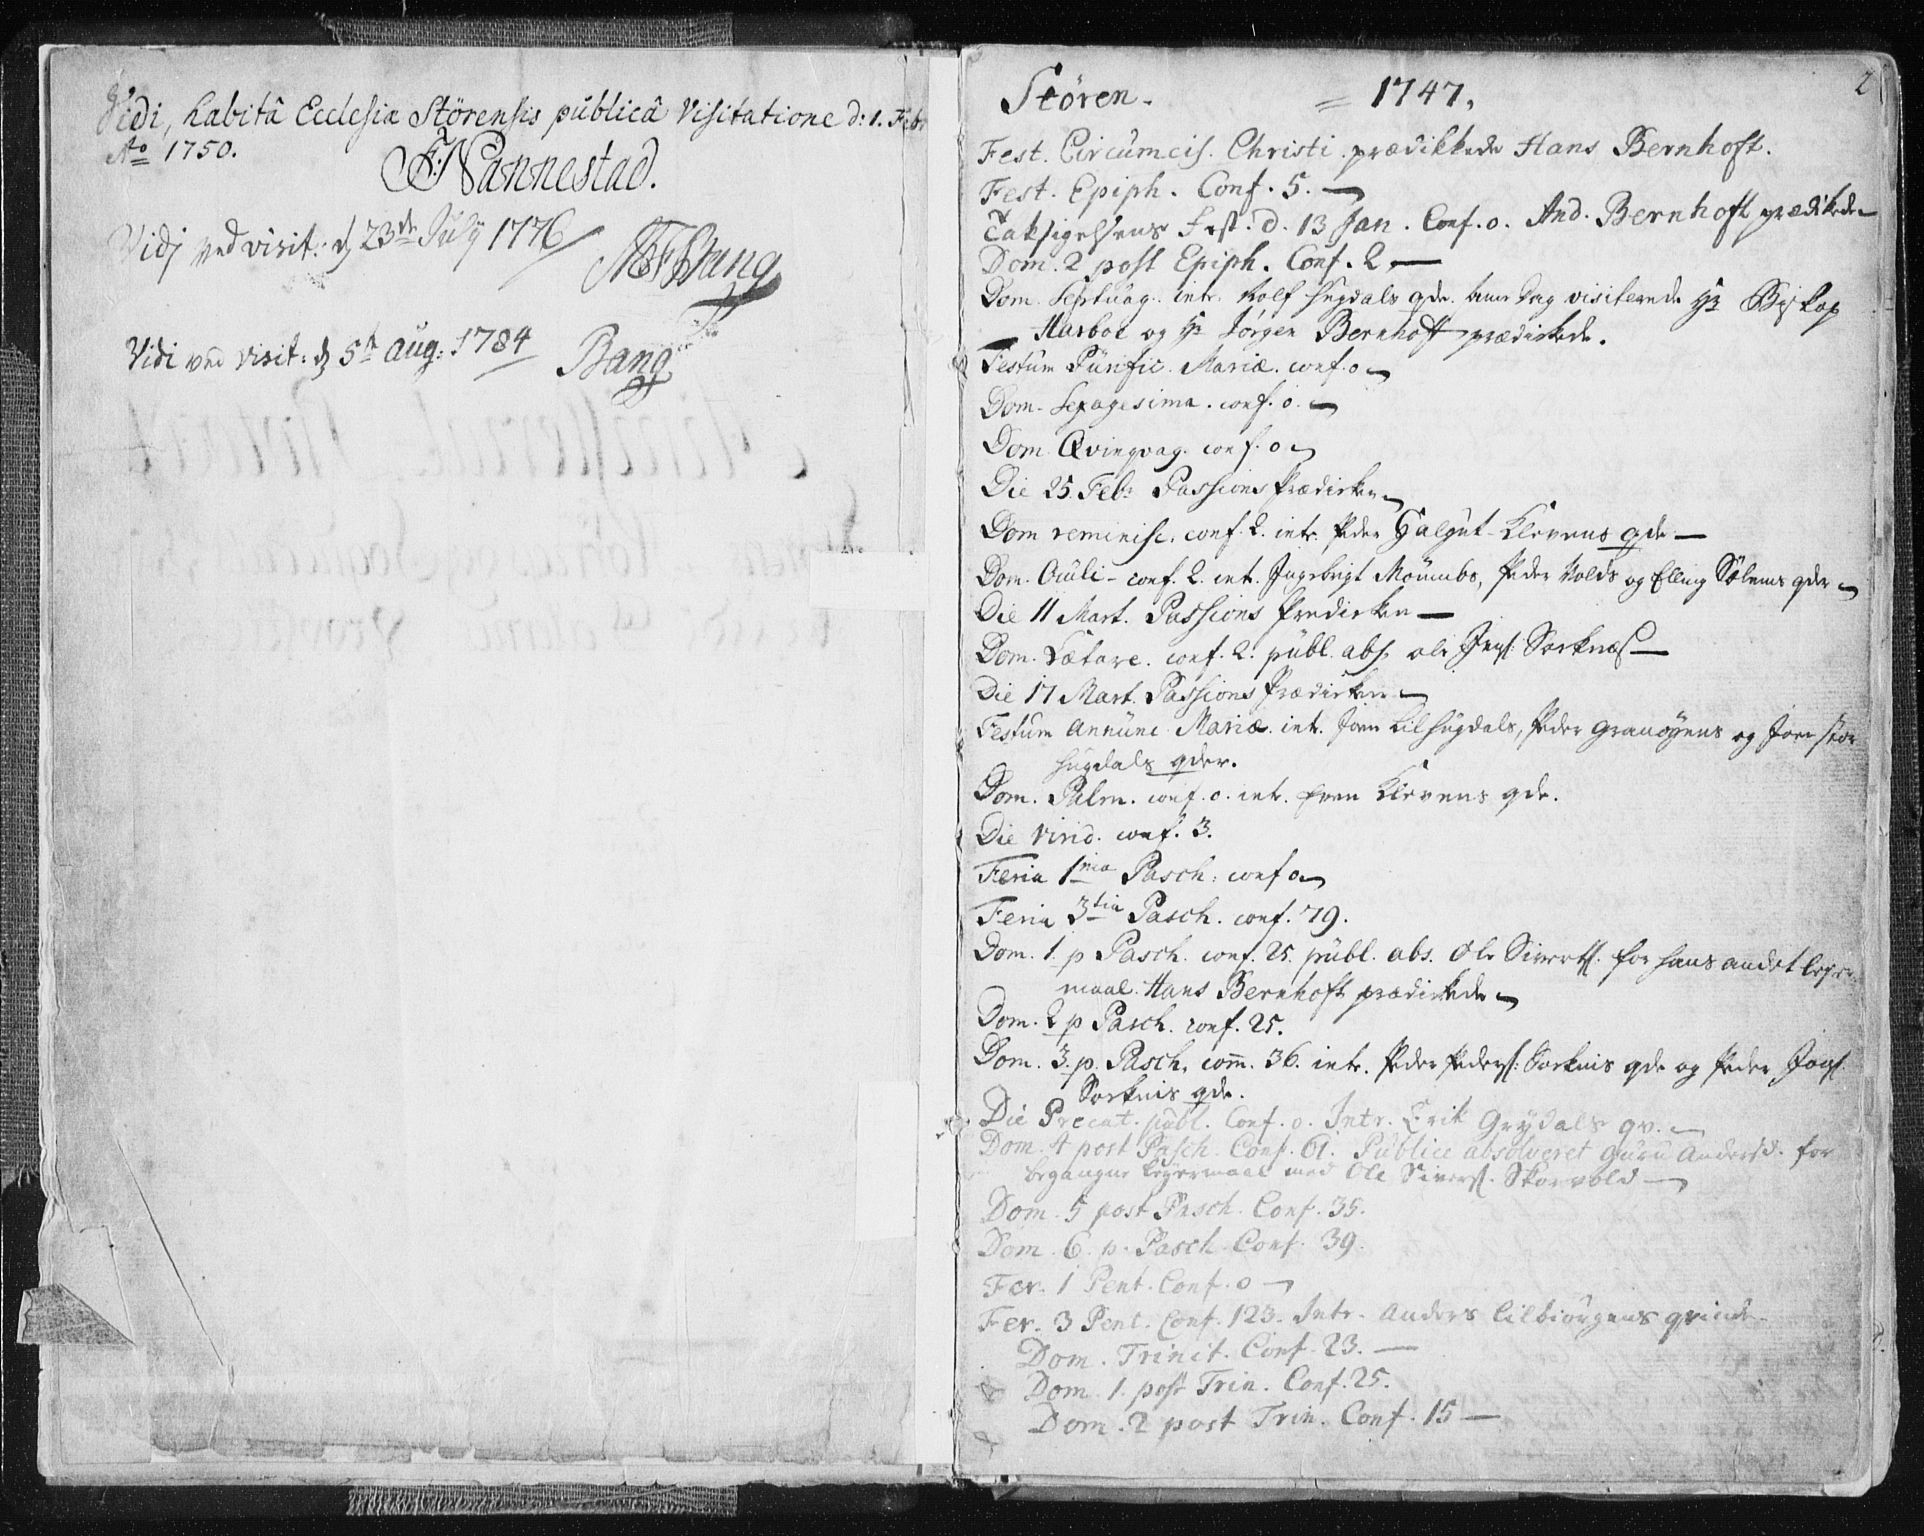 Vidi, habitâ Ecclesiæ Störensis publicâ Visitatione d: 1. Febr
Aо 1750.
F: Nannestad.
Vidj ved visit: d 23de July 1776
MFBang
Vidi ved visit: d 5te Aug: 1784
Bang
2
Stören. = 1747,
Fest. Circumcis. Christi prædikkede Hans Bernhoft.
Fest. Epiph. Conf. 5.
Taksigelsens Fest. d. 13 Jan. Conf. 0. And. Bernhoft prædikede
Dom. 2 post Epiph. Conf. 2
Dom. Septuag. intr. Rolf Hugdals qde. Denne Dag visiterede Hr Biskop
Harboe og Hr Jörgen Bernhoft prædickede.
Festum Purific. Mariæ. conf. 0
Dom. Sexagesima. conf. 0.
Dom. Qvinqvag. conf. 0
Die 25. Febr Passions Prædicken
Dom reminisc. conf. 2. intr. Peder Halgut-Klevens qde
Dom. Oculi - conf. 2. int. Ingebrigt Moumbs, Peder Volds og Elling Solems qder
Die 11 Mart. Passions Predicken
Dom. Lætare. conf. 2. publ. abs. ole Sorknæs
Die 17 Mart. Passions Prædicken
Festum Annunc Mariæ. intr. Joen Lilhugdals, Peder Granøyens og Joen Stor
hugdals qder.
Dom. Palm. conf. 0. intr. Klevens qde.
Die Virid. conf. 3.
Feria 1ma Pasch: conf 0
Feria 3tia Pasch. conf. 79.
Dom. 1 p Pasch. conf. 25. publ. abs. Ole Sivertß. for hans andet leyer
maal. Hans Bernhoft prædickede
Dom. 2 p Pasch. conf. 25.
Dom. 3. p. Pasch. com̄. 36. intr. Peder Pederß: Sorknis qde og Peder
Sorknis qde.
Die Precat. publ. Conf. 0. Intr. Erik Grydals qv.
Dom. 4 post Pasch. Conf. 61. Publice absolveret Guru Andersd. for
begangne leyermaal med Ole Siverß. Skorvold
Dom. 5 post Pasch. Conf. 35.
Dom. 6. p. Pasch. Conf. 39.
Fer. 1 Pent. Conf. 0
Fer. 3 Pent. Conf. 123. Intr. Anders Lilbiörgens qvinde
Dom. Trinit. Conf. 23.
Dom. 1. post Trin. Conf. 25.
Dom. 2 post Trin. Conf. 15